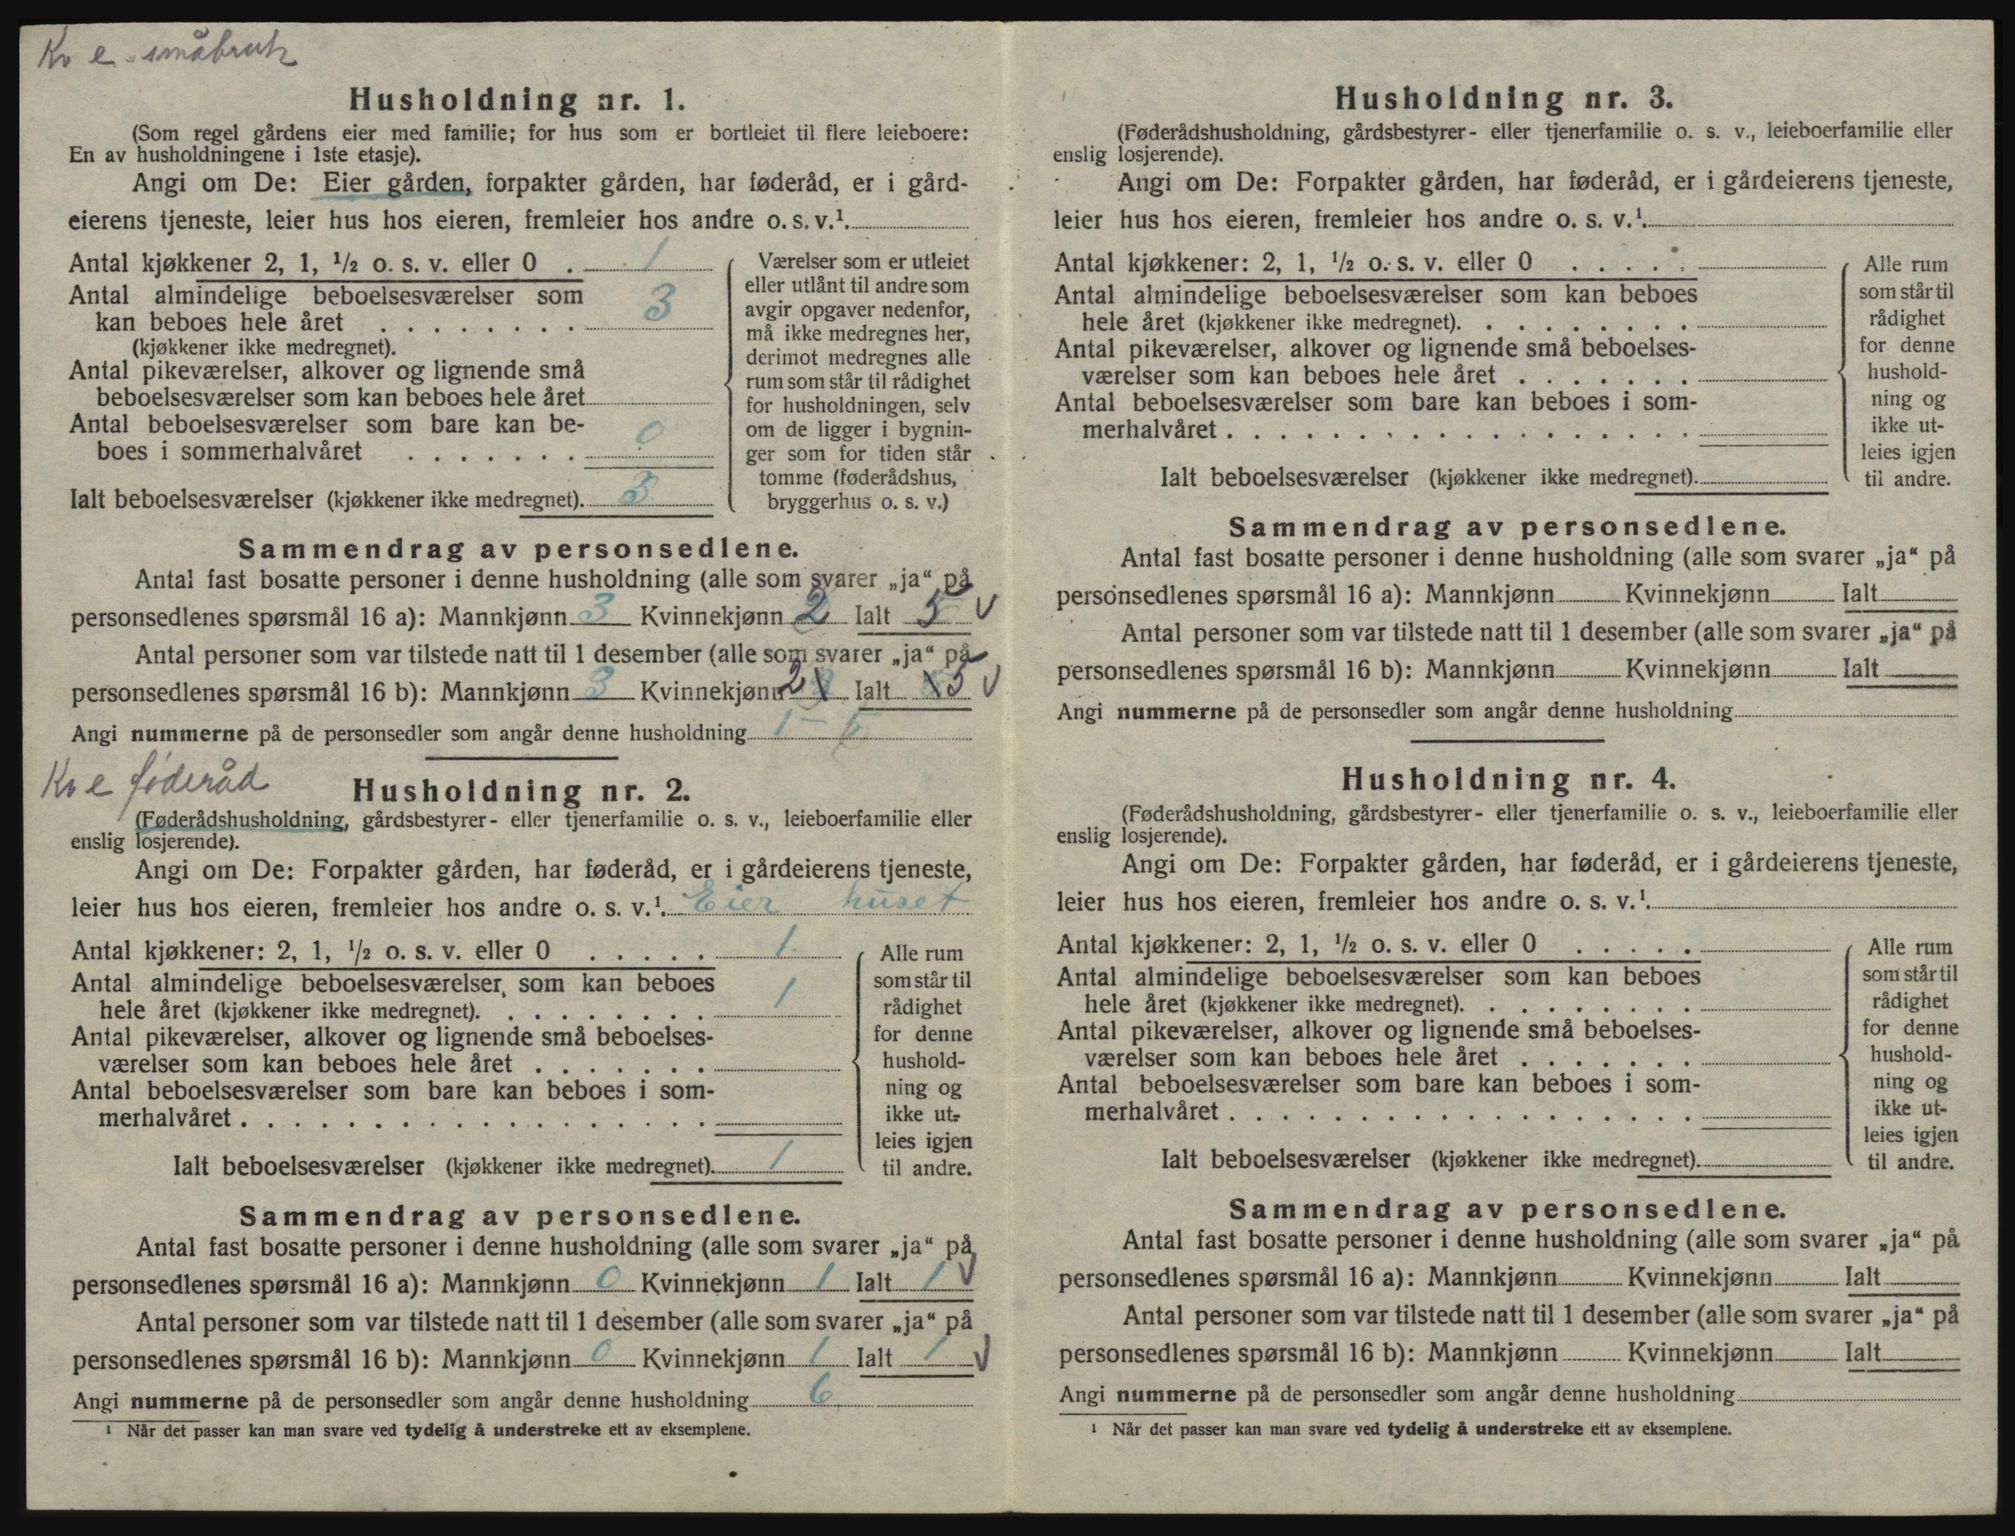 Kv e. småbruk
Husholdning nr. 1.
(Som regel gårdens eier med familie; for hus som er bortleiet til flere leieboere:
En av husholdningene i 1ste etasje).
Angi om De: Eier gården, forpakter gården, har føderåd, er i gård-
eierens tjeneste, leier hus hos eieren, fremleier hos andre o. s. v.¹.
Antal kjøkkener 2, 1, ½ o. s. v. eller 0 . 1
Antal almindelige beboelsesværelser som
kan beboes hele året . . . . . . . . 3
(kjøkkener ikke medregnet).
Antal pikeværelser, alkover og lignende små
beboelsesværelser som kan beboes hele året
Antal beboelsesværelser som bare kan be-
boes i sommerhalvåret . . . . . . . 0
Ialt beboelsesværelser (kjøkkener ikke medregnet). 3
Værelser som er utleiet
eller utlånt til andre som
avgir opgaver nedenfor,
må ikke medregnes her,
derimot medregnes alle
rum som står til rådighet
for husholdningen, selv
om de ligger i bygnin-
ger som for tiden står
tomme (føderådshus,
bryggerhus o. s. v.)
Sammendrag av personsedlene.
Antal fast bosatte personer i denne husholdning (alle som svarer „ja“ på
personsedlenes spørsmål 16 a): Mannkjønn 3 Kvinnekjønn 2 Ialt 5 √
Antal personer som var tilstede natt til 1 desember (alle som svarer „ja“ på
personsedlenes spørsmål 16 b): Mannkjønn 3 Kvinnekjønn 2 Ialt 5 √
Angi nummerne på de personsedler som angår denne husholdning 1 – 5
Kv e føderåd
Husholdning nr. 2.
(Føderådshusholdning, gårdsbestyrer- eller tjenerfamilie o. s. v., leieboerfamilie eller
enslig losjerende).
Angi om De: Forpakter gården, har føderåd, er i gårdeierens tjeneste,
leier hus hos eieren, fremleier hos andre o. s. v.¹. Eier huset
Antal kjøkkener: 2, 1, ½ o. s. v. eller 0 . . . . . 1.
Antal almindelige beboelsesværelser som kan beboes
hele året (kjøkkener ikke medregnet). . . . . . . . . 1
Antal pikeværelser, alkover og lignende små beboelses-
værelser som kan beboes hele året . . . . . . .
Antal beboelsesværelser som bare kan beboes i som-
merhalvåret . . . . . . . . . . . . . . . . . .
Ialt beboelsesværelser (kjøkkener ikke medregnet). 1
Alle rum
som står til
rådighet
for denne
hushold-
ning og
ikke ut-
leies igjen
til andre.
Sammendrag av personsedlene.
Antal fast bosatte personer i denne husholdning (alle som svarer „ja“ på
personsedlenes spørsmål 16 a): Mannkjønn 0 Kvinnekjønn 1 Ialt 1 √
Antal personer som var tilstede natt til 1 desember (alle som svarer „ja“ på
personsedlenes spørsmål 16 b): Mannkjønn 0 Kvinnekjønn 1 Ialt 1 √
Angi nummerne på de personsedler som angår denne husholdning 6
¹ Når det passer kan man svare ved tydelig å understreke ett av eksemplene.
Husholdning nr. 3.
(Føderådshusholdning, gårdsbestyrer- eller tjenerfamilie o. s. v., leieboerfamilie eller
enslig losjerende).
Angi om De: Forpakter gården, har føderåd, er i gårdeierens tjeneste,
leier hus hos eieren, fremleier hos andre o. s. v.¹.
Antal kjøkkener: 2, 1, ½ o. s. v. eller 0 . . . . .
Antal almindelige beboelsesværelser som kan beboes
hele året (kjøkkener ikke medregnet). . . . . . . . .
Antal pikeværelser, alkover og lignende små beboelses-
værelser som kan beboes hele året . . . . . . .
Antal beboelsesværelser som bare kan beboes i som-
merhalvåret . . . . . . . . . . . . . . . . . .
Ialt beboelsesværelser (kjøkkener ikke medregnet).
Alle rum
som står til
rådighet
for denne
hushold-
ning og
ikke ut-
leies igjen
til andre.
Sammendrag av personsedlene.
Antal fast bosatte personer i denne husholdning (alle som svarer „ja“ på
personsedlenes spørsmål 16 a): Mannkjønn Kvinnekjønn Ialt
Antal personer som var tilstede natt til 1 desember (alle som svarer „ja“ på
personsedlenes spørsmål 16 b): Mannkjønn Kvinnekjønn Ialt
Angi nummerne på de personsedler som angår denne husholdning
Husholdning nr. 4.
(Føderådshusholdning, gårdsbestyrer- eller tjenerfamilie o. s. v., leieboerfamilie eller
enslig losjerende).
Angi om De: Forpakter gården, har føderåd, er i gårdeierens tjeneste,
leier hus hos eieren, fremleier hos andre o. s. v.¹.
Antal kjøkkener: 2, 1, ½ o. s. v. eller 0 . . . . .
Antal almindelige beboelsesværelser som kan beboes
hele året (kjøkkener ikke medregnet). . . . . . . . .
Antal pikeværelser, alkover og lignende små beboelses-
værelser som kan beboes hele året . . . . . . .
Antal beboelsesværelser som bare kan beboes i som-
merhalvåret . . . . . . . . . . . . . . . . . .
Ialt beboelsesværelser (kjøkkener ikke medregnet).
Alle rum
som står til
rådighet
for denne
hushold-
ning og
ikke ut-
leies igjen
til andre.
Sammendrag av personsedlene.
Antal fast bosatte personer i denne husholdning (alle som svarer „ja“ på
personsedlenes spørsmål 16 a): Mannkjønn Kvinnekjønn Ialt
Antal personer som var tilstede natt til 1 desember (alle som svarer „ja“ på
personsedlenes spørsmål 16 b): Mannkjønn Kvinnekjønn Ialt
Angi nummerne på de personsedler som angår denne husholdning
¹ Når det passer kan man svare ved tydelig å understreke ett av eksemplene.